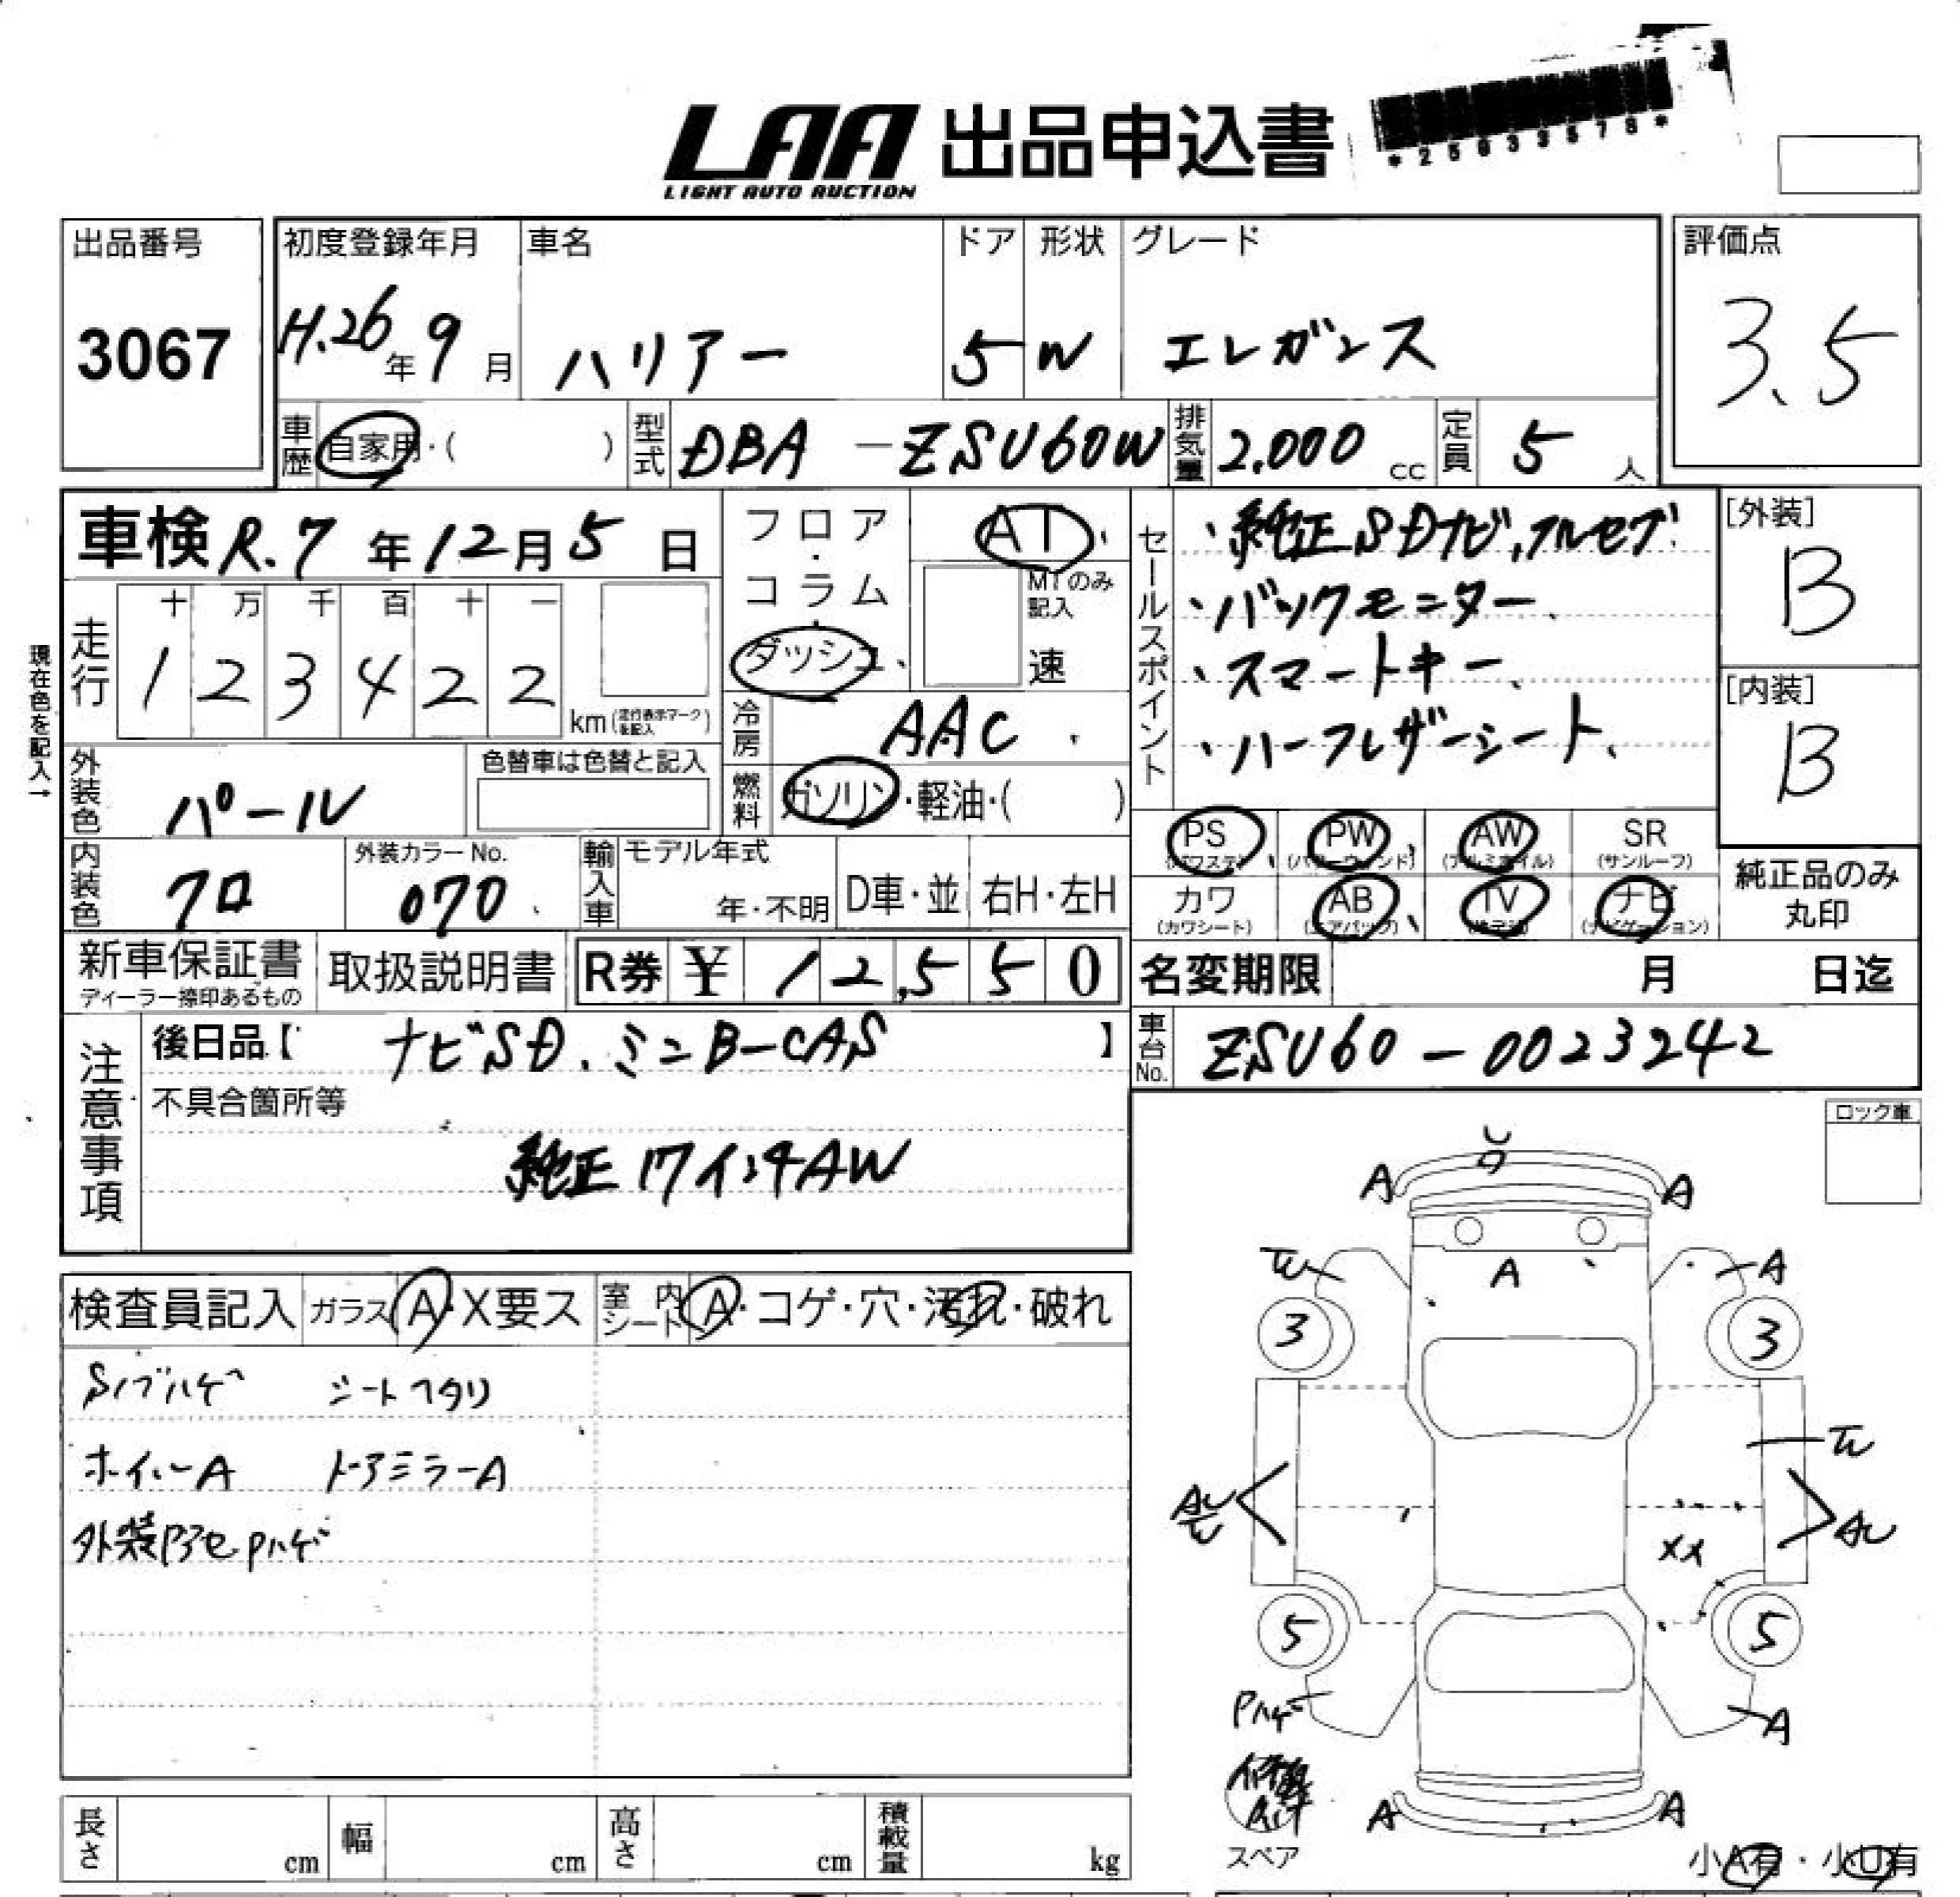 LAA 出品申込書
LIGHT AUTO AUCTION
*25033578*
出品番号
3067
初度登録年月
H.26年9月
車名
ハリアー
ドア
5
形状
W
グレード
エレガンス
評価点
3.5
車歴
自家用・( )
型式
DBA-ZSU60W
排気量
2.000cc
定員
5人
車検 R.7年12月5日
走行
十 万 千 百 十 一
1 2 3 4 2 2
km(走行表示マークを記入)
現在色を記入→
外装色
パール
色替車は色替と記入
内装色
クロ
外装カラーNo.
070
フロア・コラム・ダッシュ
AT
MTのみ記入
速
冷房
AAC
燃料
ガソリン・軽油・( )
輸入車
モデル年式
年・不明
D車・並
右H・左H
セールスポイント
・純正SDナビ,フルセグ
・バックモニター
・スマートキー
・ハーフレザーシート
[外装]
B
[内装]
B
PS (パワステ)
PW (パワーウィンド)
AW (アルミホイル)
SR (サンルーフ)
カワ (カワシート)
AB (エアバッグ)
TV
ナビ (ナビゲーション)
純正品のみ丸印
新車保証書
ディーラー捺印あるもの
取扱説明書
R券 ¥ 12,550
名変期限 月 日迄
注意事項
後日品【 ナビSD.ミニB-CAS 】
不具合箇所等
純正17インチAW
車台No.
ZSU60-0023242
ロック車
検査員記入
ガラス A・X要ス
室内シート A・コゲ・穴・汚れ・破れ
Sノブハゲ シートヘタリ
ホイールA ドアミラーA
外装キアセPハゲ
A
A
A
A
3
3
5
5
XX
Pハゲ
A
A
A
スペア
小A有・小U有
長さ cm
幅 cm
高さ cm
積載量 kg